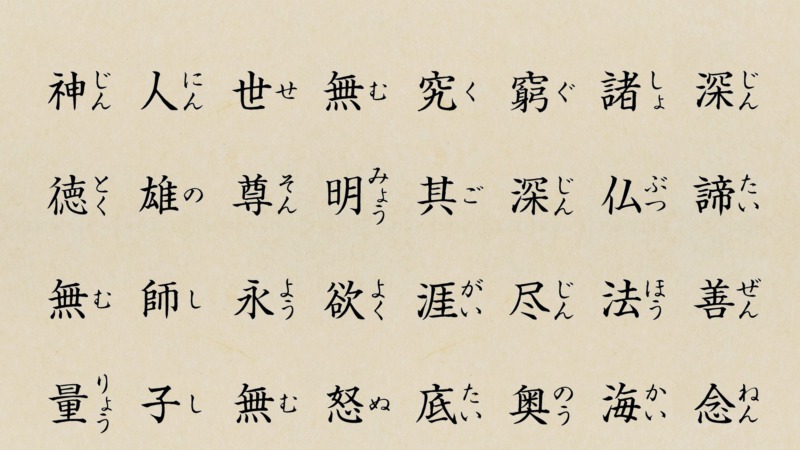 深じん諦たい善ぜん念ねん
諸しょ仏ぶつ法ほう海かい
窮ぐ深じん尽じん奥のう
究く其ご涯がい底たい
無む明みょう欲よく怒ぬ
世せ尊そん永よう無む
人にん雄の師し子し
神じん徳とく無む量りょう